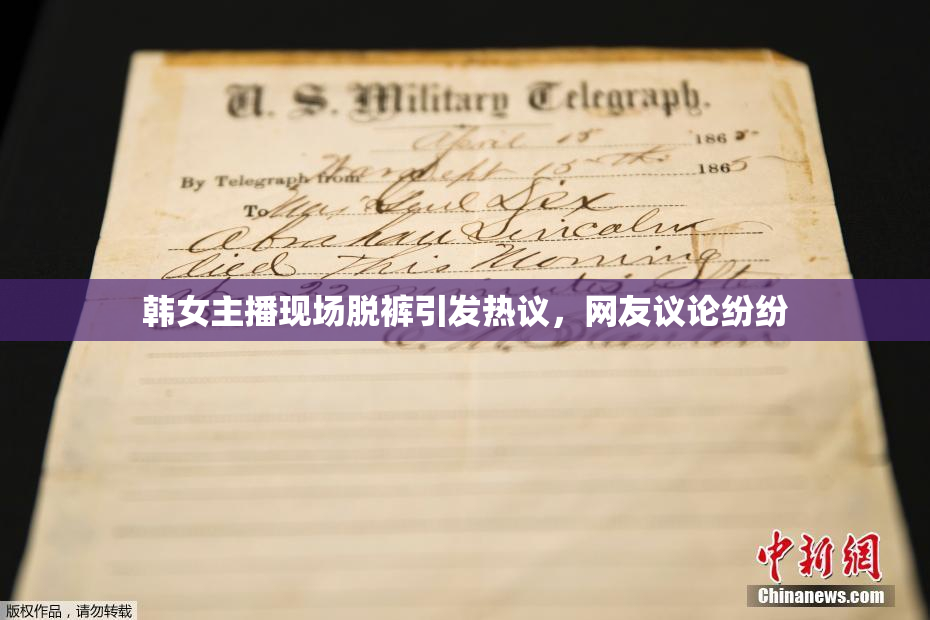 U. S. Military Telegraph.
April 15 1865
By Telegraph from War Dept 15th 1865
To Maj Genl Dix
Abraham Lincoln
died This Morning
at 22 minutes after
韩女主播现场脱裤引发热议，网友议论纷纷
E. M. Stanton
中新网
Chinanews.com
版权作品，请勿转载